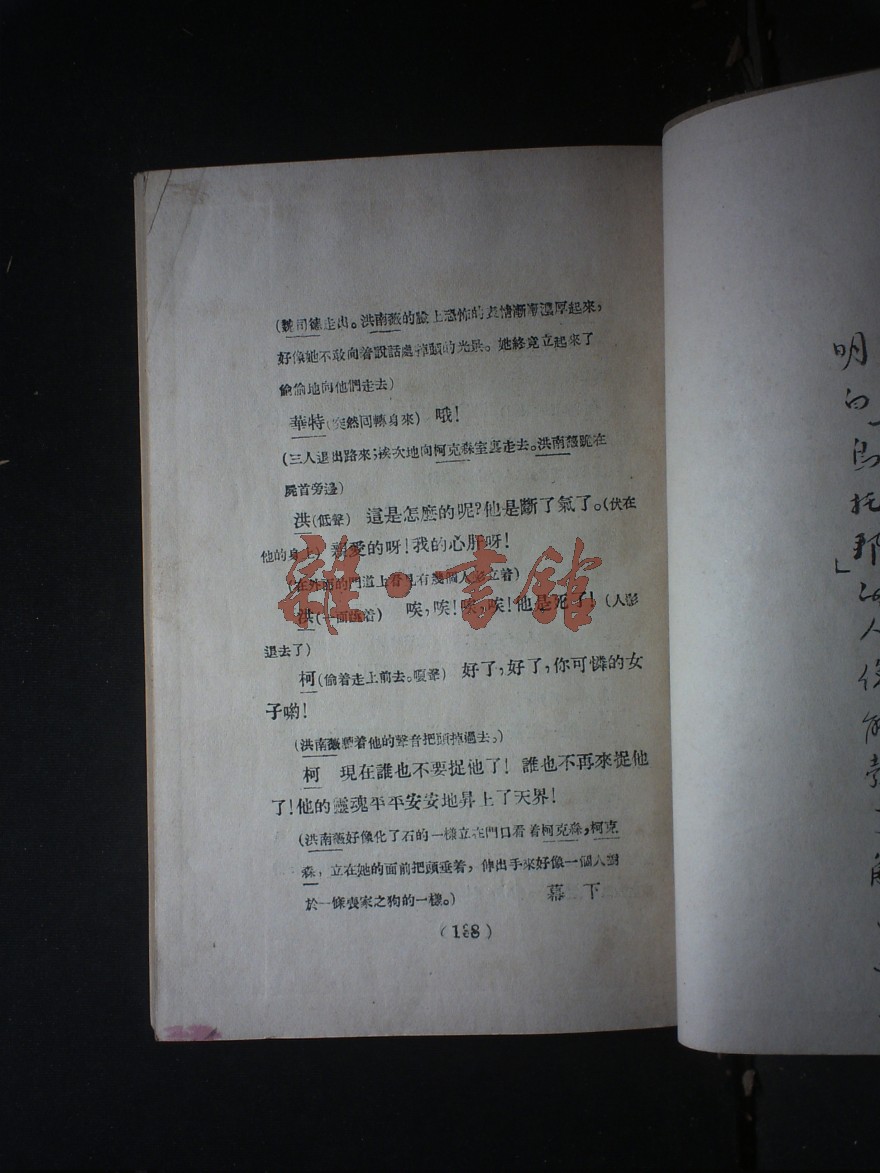 (魏司德走出。洪南薇的臉上恐怖的表情漸漸濃厚起來,
好像她不敢向着說話處掉頭的光景。她終竟立起來了
偷偷地向他們走去)
華特(突然囘轉身來) 哦!
(三人退出路來;挨次地向柯克森室裏走去。洪南薇跪在
屍首旁邊)
洪(低聲) 這是怎麽的呢?他是斷了氣了。(伏在
他的身上) 親愛的呀!我的心肝呀!
(在外部的門道上看見有幾個人影立着)
洪 唉,唉!唉,唉!他是死了!(人影
退去了)
柯(偷着走上前去。嗄聲) 好了,好了,你可憐的女
子喲!
(洪南薇聽着他的聲音把頭掉過去。)
柯 現在誰也不要捉他了!誰也不再來捉他
了!他的靈魂平平安安地昇上了天界!
(洪南薇好像化了石的一樣立在門口看着柯克森;柯克
森,立在她的面前把頭垂着,伸出手來好像一個人對
於一條喪家之狗的一樣。) 幕 下
(138)
雜·書館
明白「烏托邦」